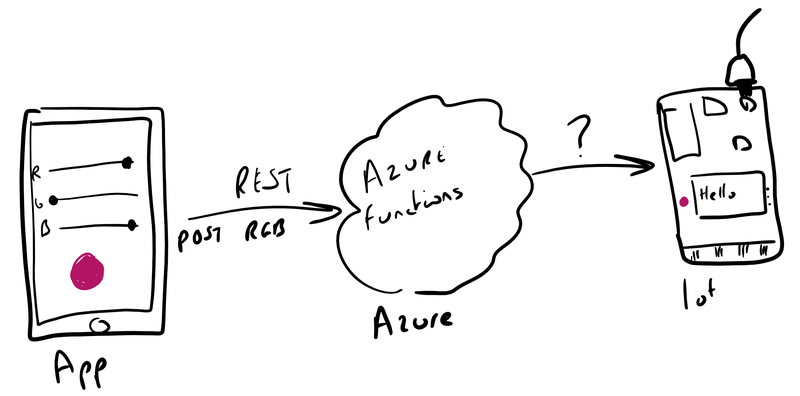 R
G
B
App
REST
POST RGB
AZURE
functions
Azure
?
Hello
Iot